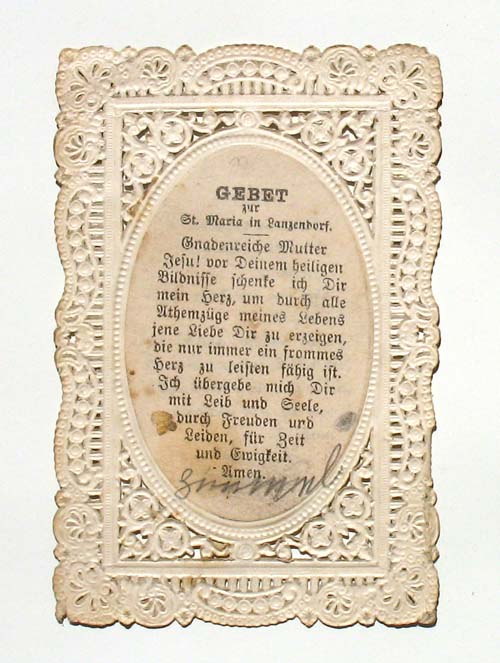 GEBET
zur
St. Maria in Lanzendorf.
Gnadenreiche Mutter
Jesu! vor Deinem heiligen
Bildnisse schenke ich Dir
mein Herz, um durch alle
Athemzüge meines Lebens
jene Liebe Dir zu erzeigen,
die nur immer ein frommes
Herz zu leisten fähig ist.
Ich übergebe mich Dir
mit Leib und Seele,
durch Freuden und
Leiden, für Zeit
und Ewigkeit.
Amen.